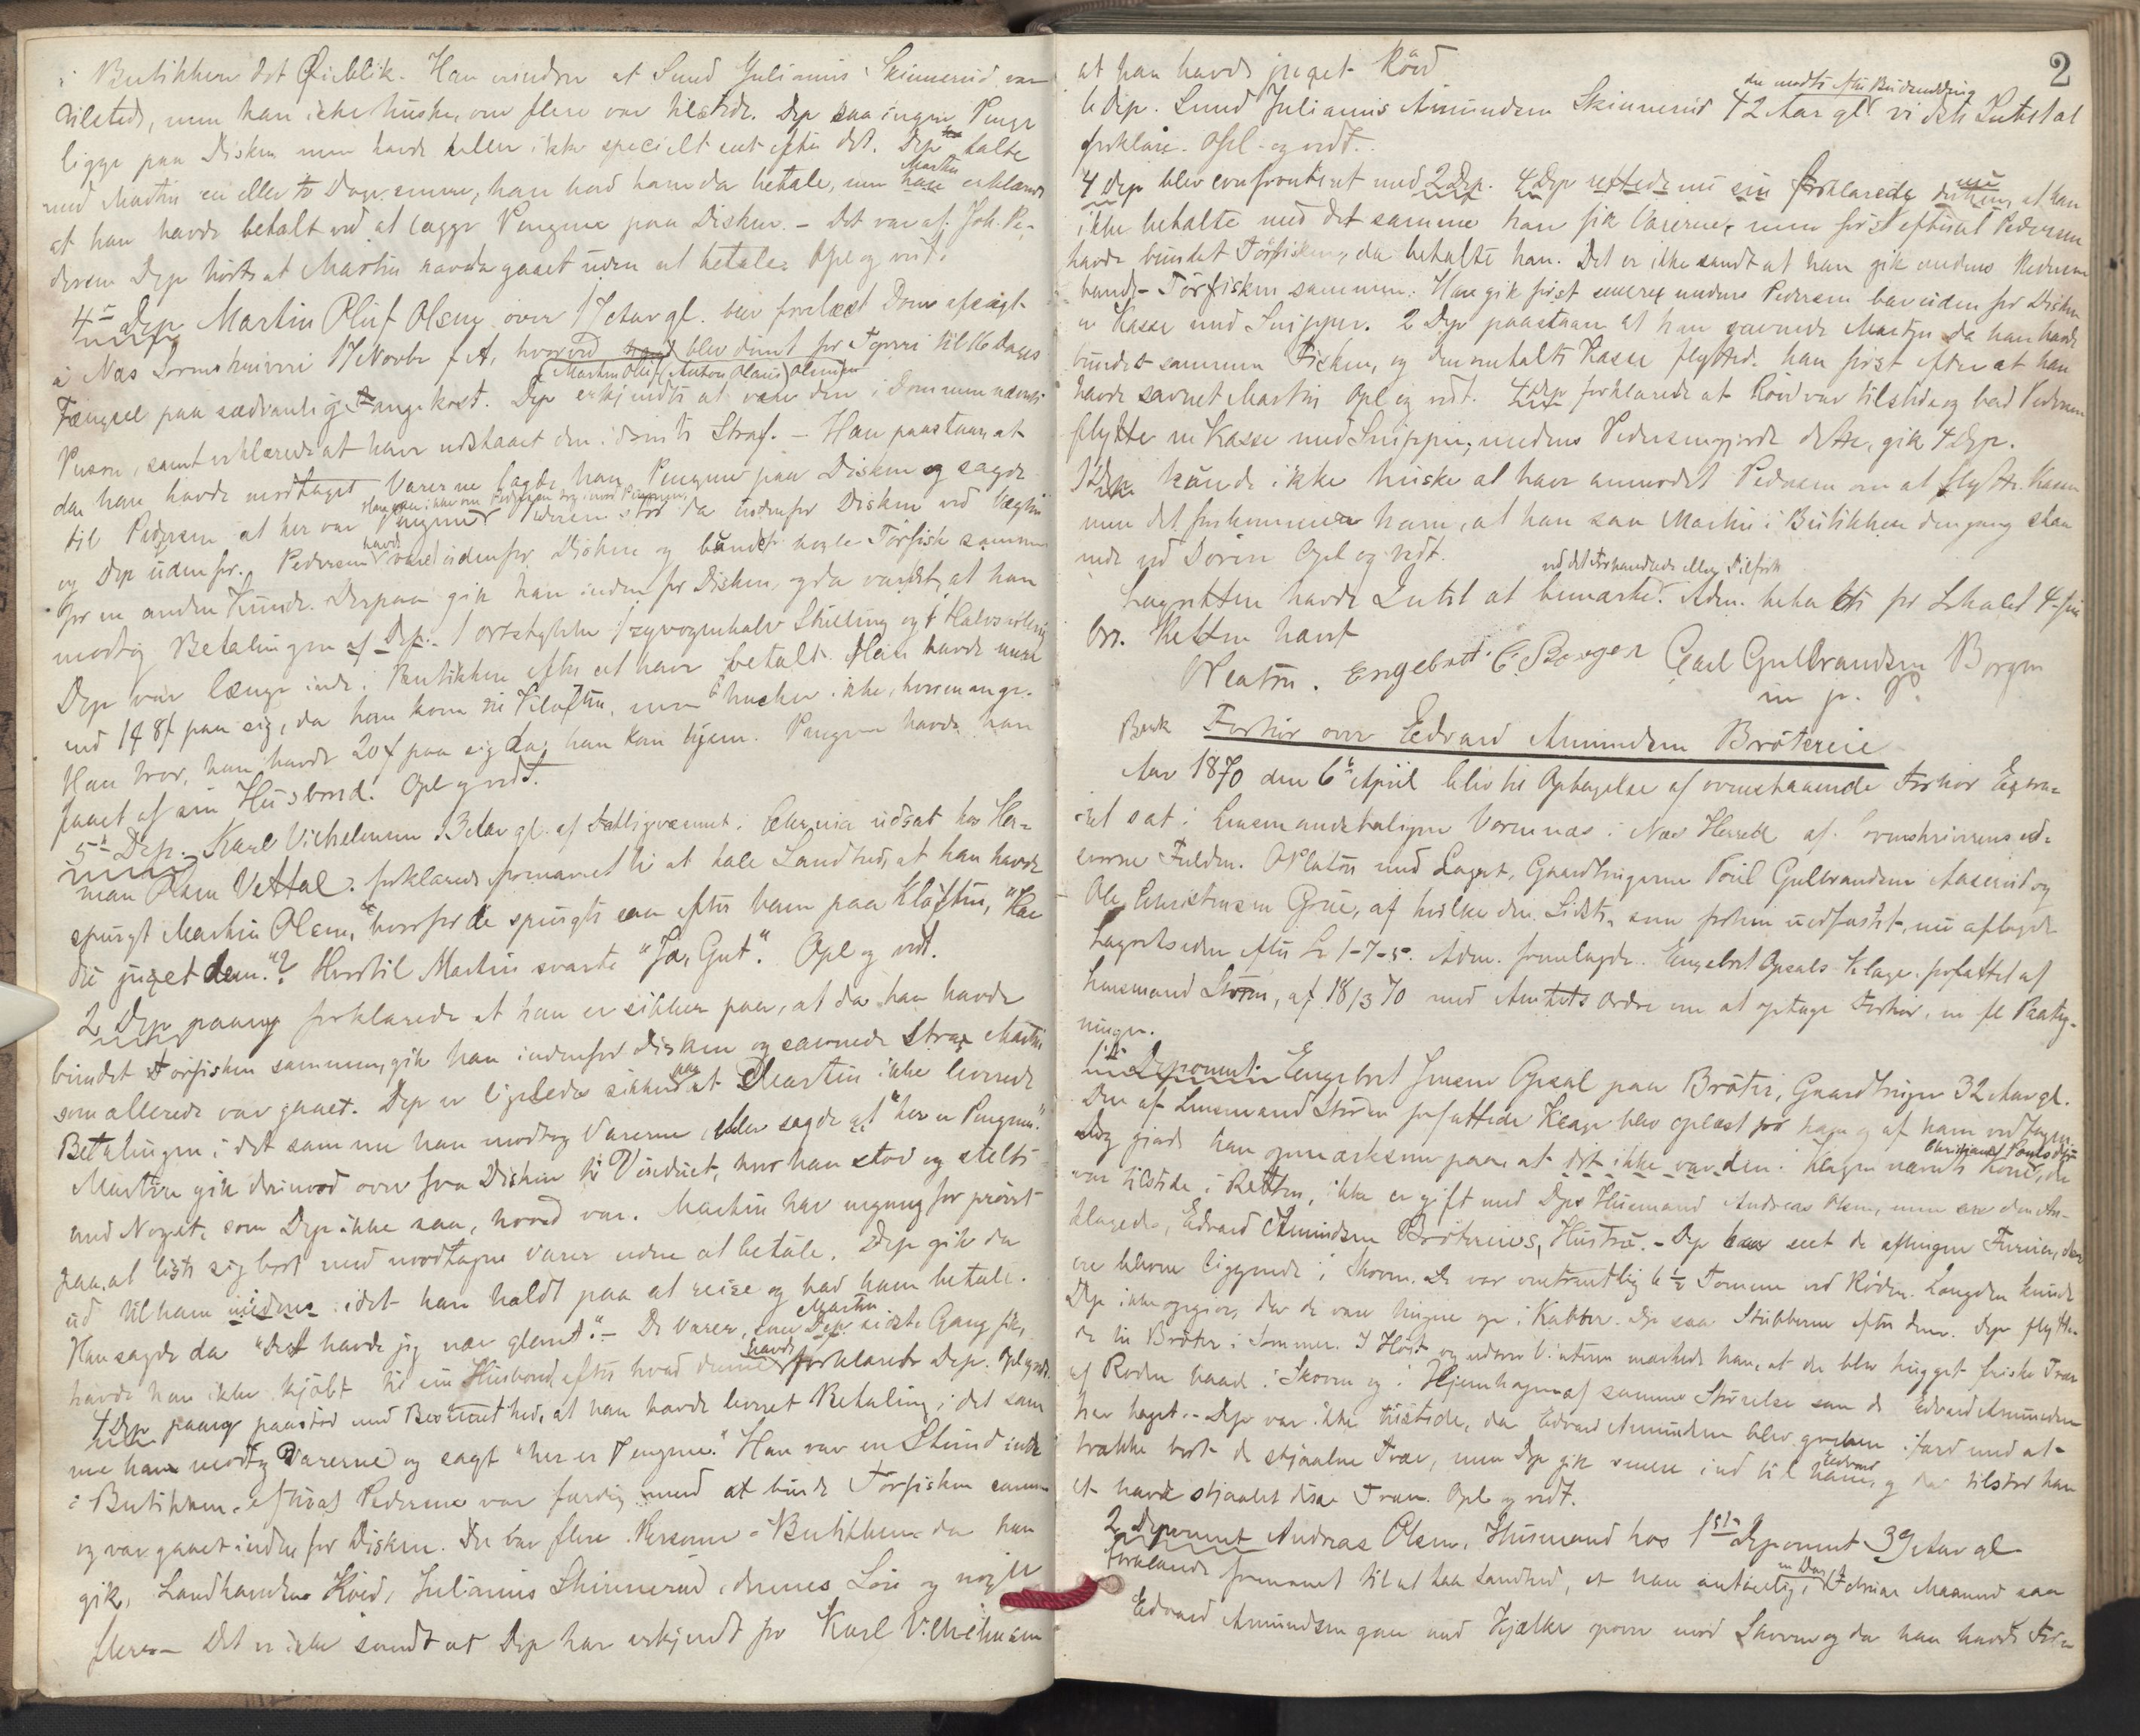 i Butikken det Øieblik. Han erindrer at Smed Julianus Skinnerud var
tilstede, men kan ikke huske, om flere var tilstede. Dep saa ingen Penge
ligge paa Disken men havde heller ikke specielt seet efter det. Dep talte
med Martin en eller to Dage senere, han bad ham da betale, men Martin erklærede
at han havde betalt ved at lægge Pengene paa Disken. – Det var af Joh. Pe-
dersen Dep hørte at Martin havde gaaet uden at betale. Opl og vedt.
4de Dep Martin Oluf Olsen over 17 Aar gl. blev forelæst Dom afsagt
i Næs Sorenskriveri 17 Novbr f A, hvorved blev dømt for Tyveri til 16 Dages
(Martin Oluf (Anton Olaus) Olsen)
Fængsel paa sædvanlig Fangekost. Dep erkjendte at være den i Dommen nævnte
Person, samt erklærede at have udstaaet den idømte Straf. – Han paastaar, at
da han havde modtaget Varerne lagde han Pengene paa Disken og sagde
til Pedersen at her var Pengene. Pedersen stod da indenfor Disken ved Vægten
og Dep udenfor. Pedersen havde været udenfor Disken og bundet nogle Tørfisk sammen
for en anden Kunde. Derpaa gik han inden for Disken, og da var det, at han
modtog Betalingen af Dep. 1 ortstykke 1 syvogenhalv Skilling og 1 Halvskilling
Dep var længe inde i Butikken efter at have betalt. Han havde mere
end 14 ß paa sig, da han kom til Kløften, men husker ikke, hvormange.
Han tror, han havde 20 ß paa sig da han kom hjem. Pengene havde han
faaet af sin Husbond. Opl og vedt.
5te Dep. Karl Vilhelmsen 13 Aar gl. af Fattigvæsenet i Christiania udsat hos Her-
man Olsen Vettal. forklarede formanet til at tale Sandhed, at han havde
spurgt Martin Olsen, hvorfor de spurgte saa efter ham paa Kløften, "Har
du juget dem."? Hvortil Martin svarte "Ja, Gut". Opl og vedt.
2 Dep paany forklarede at han er sikker paa, at da han havde
bundet Tørfisken sammen, gik han indenfor Disken og savnede strax Martin
som allerede var gaaet. Dep er ligeledes sikker paa at Martin ikke leverede
Betalingen i det samme han modtog Varerne, eller sagde at "her er Pengene".
Martin gik derimod over fra Disken til Vinduet, hvor han stod og stelte
med Noget, som Dep ikke saa, hvad var. Martin har engang før prøvet
paa, at liste sig bort med modtagne Varer uden at betale. Dep gik da
ud til ham idet han holdt paa at reise og bad ham betale.
Han sagde da "Det havde jeg nær glemt." – De Varer, som Martin sidste Gang fik,
havde han ikke kjøbt til sin Husbond efter hvad denne havde forklaret Dep. Opl og vedt.
4 Dep paany paastod med Bestemthed, at han havde leveret Betaling i det sam-
me han modtog Varerne og sagt "her er Pengene." Han var en Stund inde
i Butikken, efterat Pedersen var færdig med at binde Tørfisken sammen
og var gaaet inden for Disken. Der var flere Personer i Butikken da han
gik, Landhandler Röed, Julianus Skinnerud, dennes Søn og nogle
flere – Det er ikke sandt at Dep har erkjendt for Karl Vilhelmsen
2
at han havde juget Röed
6 Dep. Smed Julianus Amundsen Skinnerud 42 Aar gl. vidste Intet at
der mødte efter Budsending
forklare. Opl. og vedt.
4 Dep blev confronteret med 2 Dep. 4 Dep rettede nu sin Forklaring derhen, at han
ikke betalte med det samme han fik Varerne, men først efterat Pedersen
havde bundet Tørfisken, da betalte han. Det er ikke sandt at han gik medens Pedersen
bandt Tørfisken sammen. Han gik først medens Pedersen bar udenfor Disken
en Kasse med Snipper. 2 Dep paastaar at han savnede Martin da han havde
bundet sammen Fisken, og den omtalte Kasse flyttede han først efter at han
havde savnet Martin Opl og vedt. 4 Dep forklarede at Röed var tilstede og bad Pedersen
flytte en Kasse med Snipper, medens Pedersen gjorde dette, gik 4 Dep.
1 Dep kunde ikke huske at have anmodet Pedersen om at flytte Kassen
men det forekommer ham, at han saa Martin i Butikken dengang staa
nede ved Døren Opl og vedt.
Lagretten havde Intet at bemærke ved det Forhandlede eller Tilførte. Adm. betalte for Lokalet 4 ß
Retten hævet
Platou. Engebret C. Borgen Carl Gulbrandsen Borgen
m. p. P.
Besk Forhør over Edvard Amundsen Bröterein
Aar 1870 den 6te April blev til Optagelse af ovenstaaende Forhør Extra-
ret sat i Lensmandsboligen Vormnæs i Næs Herred af Sorenskriverens ed-
svorne Fuldm. O Platou med Lagret, Gaardbrugerne Poul Gulbrandsen Aaserud og
Ole Christensen Grue, af hvilke den Sidste, som forhen uedfæstet, nu aflagde
Lagretseden efter Lr 1-7-5. Adm. fremlagde. Engebret Opsals Klage, forfattet af
Lensmand Storm, af 18/3 70 med Amtets Ordre om at optage Forhør, m. fl Paateg-
ninger.
1ste Deponent. Engebret Jensen Opsal paa Bröter, Gaardbruger 32 Aar gl.
Den af Lensmand Storm forfattede Klage blev oplæst for ham og af ham vedtagen.
Dog gjorde han opmærksom paa, at det ikke var den i Klagen nævnte Kone, Christiane Poulsdtr
var tilstede i Retten, ikke er gift med Deps Husmand Andreas Olsen, men er den An-
klagede, Edvard Amundsen Brötereies, Hustru. – Dep har seet de afhugne Furuer, der
ere blevne liggende i Skoven. De var omtrentlig 6½ Tomme ved Roden. Længden kunde
Dep ikke opgive, da de vare hugne op i Kabber. Dep saa Stubberne efter dem. Dep flytte-
de til Bröter i Sommer. I Høst og udover Vinteren mærkede han, at der blev hugget friske Træer
af Roden baade i Skoven og i Hjemhagen af samme Størrelse som de Edvard Amundsen
har taget. – Dep var ikke tilstede, da Edvard Amundsen blev greben ifærd med at
trække bort de stjaalne Træer, men Dep gik senere ind til Edvard, og der tilstod han
at have stjaalet disse Træer. Opl og vedt.
2 Deponent Andreas Olsen, Husmand hos 1ste Deponent 39 Aar gl
forklarede formanet til at tale Sandhed, at han en Dag i Februar Maaned saa
Edvard Amundsen gaa med Kjælke opover mod Skoven og da han havde For-